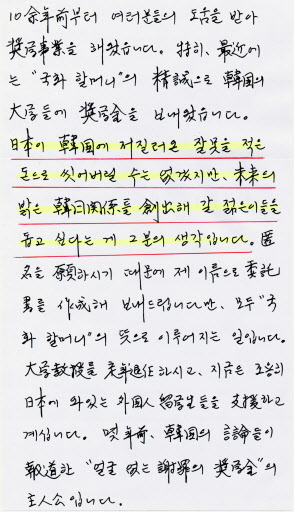 10余年前부터 여러분들의 도움을 받아
奬學事業을 해왔습니다. 特히, 最近에
는 "국화 할머니"의 精誠으로 韓国의
大学들에 奬学金을 보내왔습니다.
日本이 韓国에 저질러온 잘못을 적은
돈으로 씻어버릴 수는 없겠지만, 未来의
밝은 韓日関係를 創出해 갈 젊은이들을
돕고 싶다는 게 그분의 생각입니다. 匿
名을 願하시기 때문에 제 이름으로 委託
書를 作成해 보내드립니다만, 모두 "국
화 할머니"의 뜻으로 이루어지는 일입니다.
大学教授를 定年退任하시고, 지금은 조용히
日本에 와있는 外国人 留学生들을 支援하고
계십니다. 몇年前, 韓国의 言論들이
報道한 "얼굴 없는 謝罪의 奬学金"의
主人公입니다.